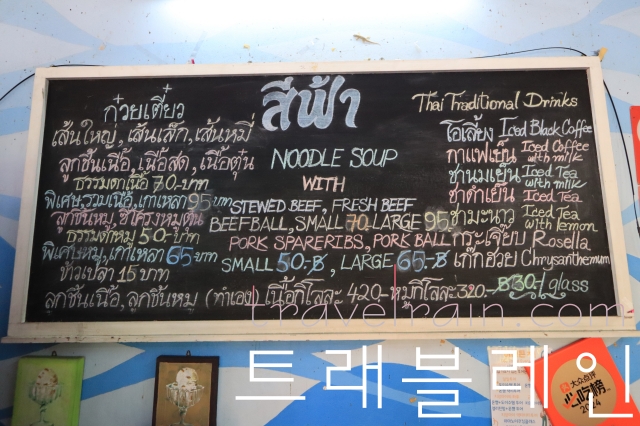 ก๋วยเตี๋ยว
เส้นใหญ่, เส้นเล็ก, เส้นหมี่
ลูกชิ้นเนื้อ, เนื้อสด, เนื้อตุ๋น
ธรรมดาเนื้อ 70.-บาท
พิเศษ,รวมเนื้อ,เกาเหลา 95 บาท
ลูกชิ้นหมู, ซี่โครงหมูตุ๋น
ธรรมดาหมู 50.-บาท
พิเศษหมู,เกาเหลา 65 บาท
ข้าวเปล่า 15 บาท
ลูกชิ้นเนื้อ, ลูกชิ้นหมู (ทำเอง) เนื้อกิโลละ 420.-หมูกิโลละ 320.-
สีฟ้า
NOODLE SOUP
WITH
STEWED BEEF, FRESH BEEF
BEEFBALL, SMALL 70. LARGE 95.-
PORK SPARERIBS, PORK BALL
SMALL 50.-B, LARGE 65.-B
Thai Traditional Drinks
โอเลี้ยง Iced Black Coffee
กาแฟเย็น Iced Coffee with milk
ชานมเย็น Iced Tea with milk
ชาดำเย็น Iced Tea
ชามะนาว Iced Tea with lemon
กระเจี๊ยบ Rosella
เก๊กฮวย Chrysanthemum
B30.-/glass
travelrain.com
트래블레인
大众点评
必吃榜
2024